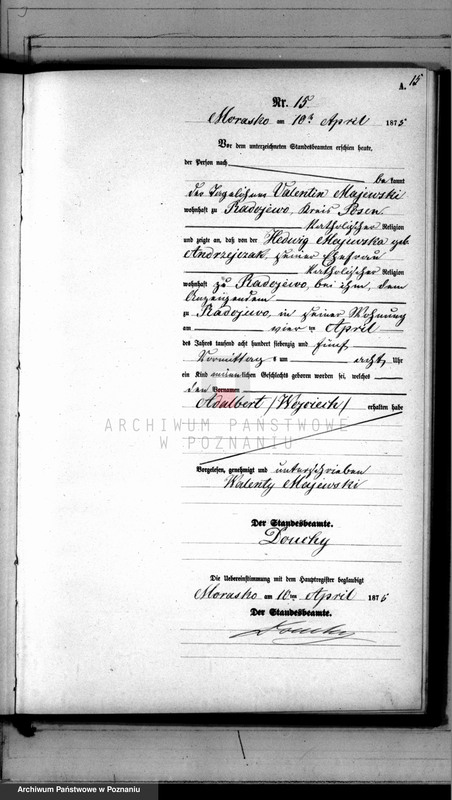 A. 15
Nr. 15
Morasko am 10t April 1875
Vor dem unterzeichneten Standesbeamten erschien heute,
der Person nach
be kannt
der Tagelöhner Valentin Majewski
wohnhaft zu Radojewo, Kreis Posen
katholischer Religion
und zeigte an, daß von der Hedwig Majewska geb.
Andrzejczak, seiner Ehefrau
katholischer Religion
wohnhaft zu Radojewo, bei ihm, dem
Anzeigenden
zu Radojewo, in seiner Wohnung
am vier ten April
des Jahres tausend acht hundert siebenzig und fünf
Vormittag s um acht Uhr
ein Kind männlichen Geschlechts geboren worden sei, welches
den Vornamen
Adalbert /Wojciech/ erhalten habe
ARCHIWUM PAŃSTWOWE
W POZNANIU
Vorgelesen, genehmigt und unterschrieben
Walenty Majewski
Der Standesbeamte.
Douchy
Die Uebereinstimmung mit dem Hauptregister beglaubigt
Morasko am 10ten April 1875
Der Standesbeamte.
Douchy
Archiwum Państwowe w Poznaniu